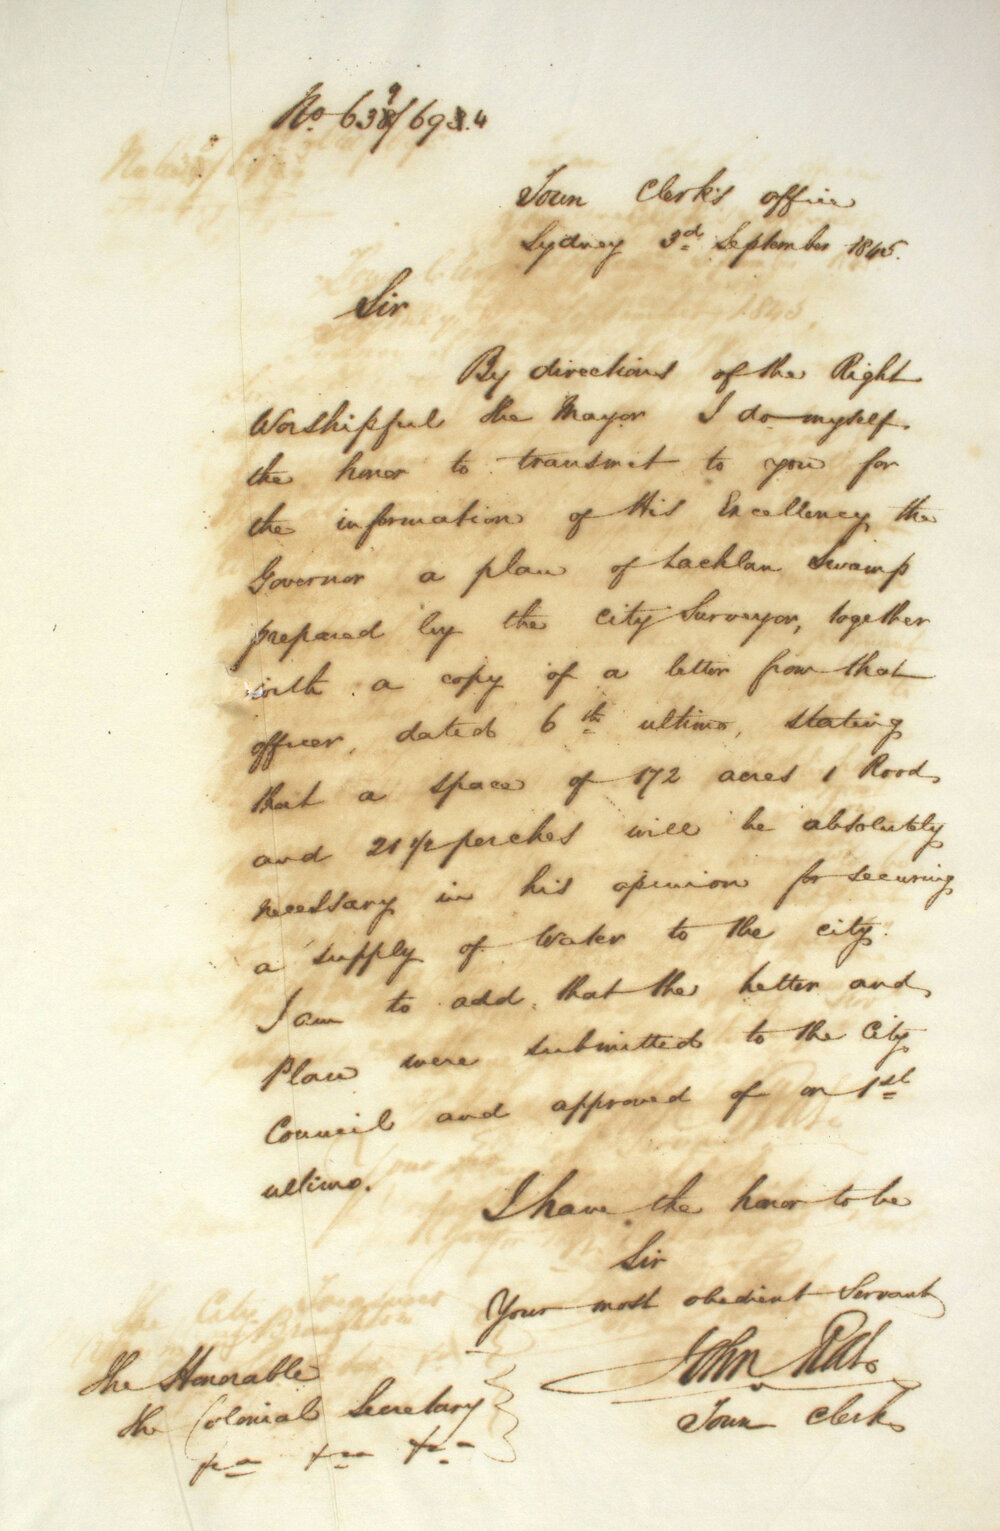 No. 639/693.4
Town Clerk's office
Sydney 3d September 1845.
Sir
By directions of the Right
Worshipful the Mayor I do myself
the honor to transmit to you for
the information of His Excellency the
Governor a plan of Lachlan Swamp
prepared by the city Surveyor, together
with a copy of a letter from that
officer, dated 6th ultimo, stating
that a space of 172 acres 1 Rood
and 21 1/2 perches will be absolutely
necessary in his opinion for securing
a supply of Water to the city.
I am to add that the letter and
Plan were submitted to the City
Council and approved of on 1st
ultimo.
I have the honor to be
Sir
Your most obedient Servant
John
Town Clerk
The Honorable
the Colonial Secretary